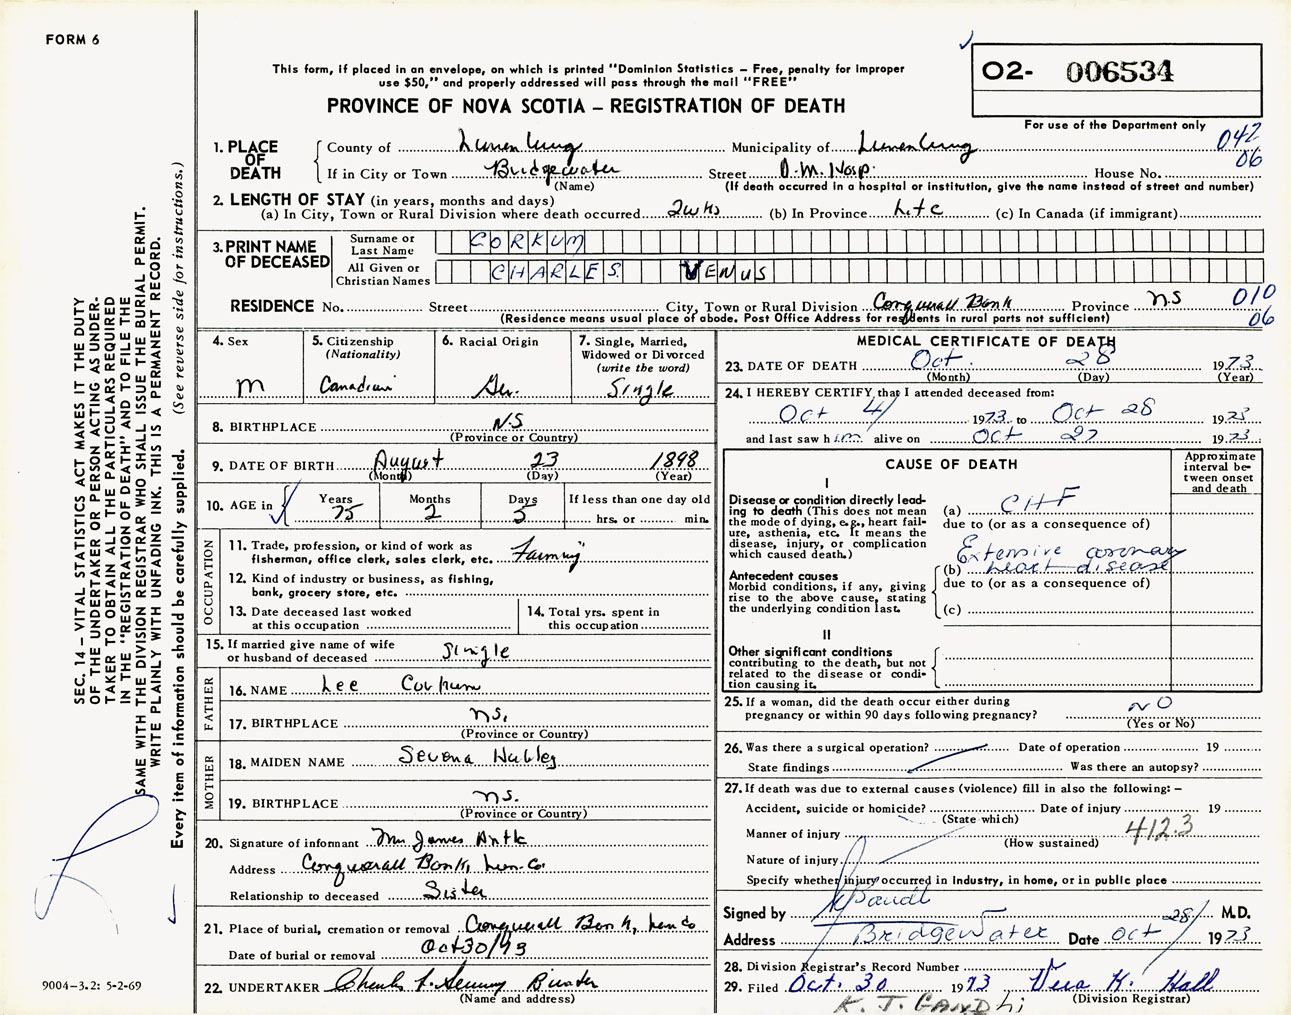 FORM 6
This form, if placed in an envelope, on which is printed "Dominion Statistics – Free, penalty for improper
use $50," and properly addressed will pass through the mail "FREE"
PROVINCE OF NOVA SCOTIA – REGISTRATION OF DEATH
O2- 006534
For use of the Department only
042
06
1. PLACE OF DEATH
County of Lunenburg Municipality of Lunenburg
If in City or Town Bridgewater Street D.M. Hosp. House No.
(Name) (If death occurred in a hospital or institution, give the name instead of street and number)
2. LENGTH OF STAY (in years, months and days)
(a) In City, Town or Rural Division where death occurred 2wks (b) In Province Life (c) In Canada (if immigrant)
3. PRINT NAME OF DECEASED
Surname or Last Name CORKUM
All Given or Christian Names CHARLES VENUS
RESIDENCE No. Street City, Town or Rural Division Conquerall Bank Province N.S 010
(Residence means usual place of abode. Post Office Address for residents in rural parts not sufficient) 06
4. Sex M
5. Citizenship (Nationality) Canadian
6. Racial Origin Ger.
7. Single, Married, Widowed or Divorced (write the word) Single
8. BIRTHPLACE N.S
(Province or Country)
9. DATE OF BIRTH August 23 1898
(Month) (Day) (Year)
10. AGE in Years 75 Months 2 Days 5 If less than one day old
hrs. or min.
OCCUPATION
11. Trade, profession, or kind of work as
fisherman, office clerk, sales clerk, etc. "Farming"
12. Kind of industry or business, as fishing,
bank, grocery store, etc.
13. Date deceased last worked
at this occupation
14. Total yrs. spent in
this occupation
15. If married give name of wife
or husband of deceased Single
FATHER
16. NAME Lee Corkum
17. BIRTHPLACE N.S.
(Province or Country)
MOTHER
18. MAIDEN NAME Sevena
19. BIRTHPLACE N.S.
(Province or Country)
20. Signature of informant Mrs James
Address Conquerall Bank, Lun. Co.
Relationship to deceased Sister
21. Place of burial, cremation or removal Conquerall Bank, Lun Co
Date of burial or removal Oct 30/73
22. UNDERTAKER Charles
(Name and address)
MEDICAL CERTIFICATE OF DEATH
23. DATE OF DEATH Oct. 28 1973
(Month) (Day) (Year)
24. I HEREBY CERTIFY that I attended deceased from:
Oct 4/ 1973 to Oct 28 1973
and last saw him alive on Oct 27 1973
CAUSE OF DEATH
Approximate interval between onset and death
I
Disease or condition directly lead-
ing to death (This does not mean
the mode of dying, e.g., heart fail-
ure, asthenia, etc. It means the
disease, injury, or complication
which caused death.)
(a) CHF
due to (or as a consequence of)
Extensive coronary
(b) heart disease
Antecedent causes
Morbid conditions, if any, giving
rise to the above cause, stating
the underlying condition last.
due to (or as a consequence of)
(c)
II
Other significant conditions
contributing to the death, but not
related to the disease or condi-
tion causing it.
25. If a woman, did the death occur either during
pregnancy or within 90 days following pregnancy? NO
(Yes or No)
26. Was there a surgical operation? Date of operation 19
State findings Was there an autopsy?
27. If death was due to external causes (violence) fill in also the following: –
Accident, suicide or homicide? Date of injury 19
(State which)
Manner of injury 412.3
(How sustained)
Nature of injury
Specify whether injury occurred in industry, in home, or in public place
Signed by 28/ M.D.
Address Bridgewater Date Oct 1973
28. Division Registrar's Record Number
29. Filed Oct. 30 1973 Vera K. Hall
(Division Registrar)
K. J. GANDhi
SEC. 14 – VITAL STATISTICS ACT MAKES IT THE DUTY
OF THE UNDERTAKER OR PERSON ACTING AS UNDER-
TAKER TO OBTAIN ALL THE PARTICULARS REQUIRED
IN THE "REGISTRATION OF DEATH" AND TO FILE THE
SAME WITH THE DIVISION REGISTRAR WHO SHALL ISSUE THE BURIAL PERMIT.
WRITE PLAINLY WITH UNFADING INK. THIS IS A PERMANENT RECORD.
Every item of information should be carefully supplied. (See reverse side for instructions.)
9004-3.2: 5-2-69